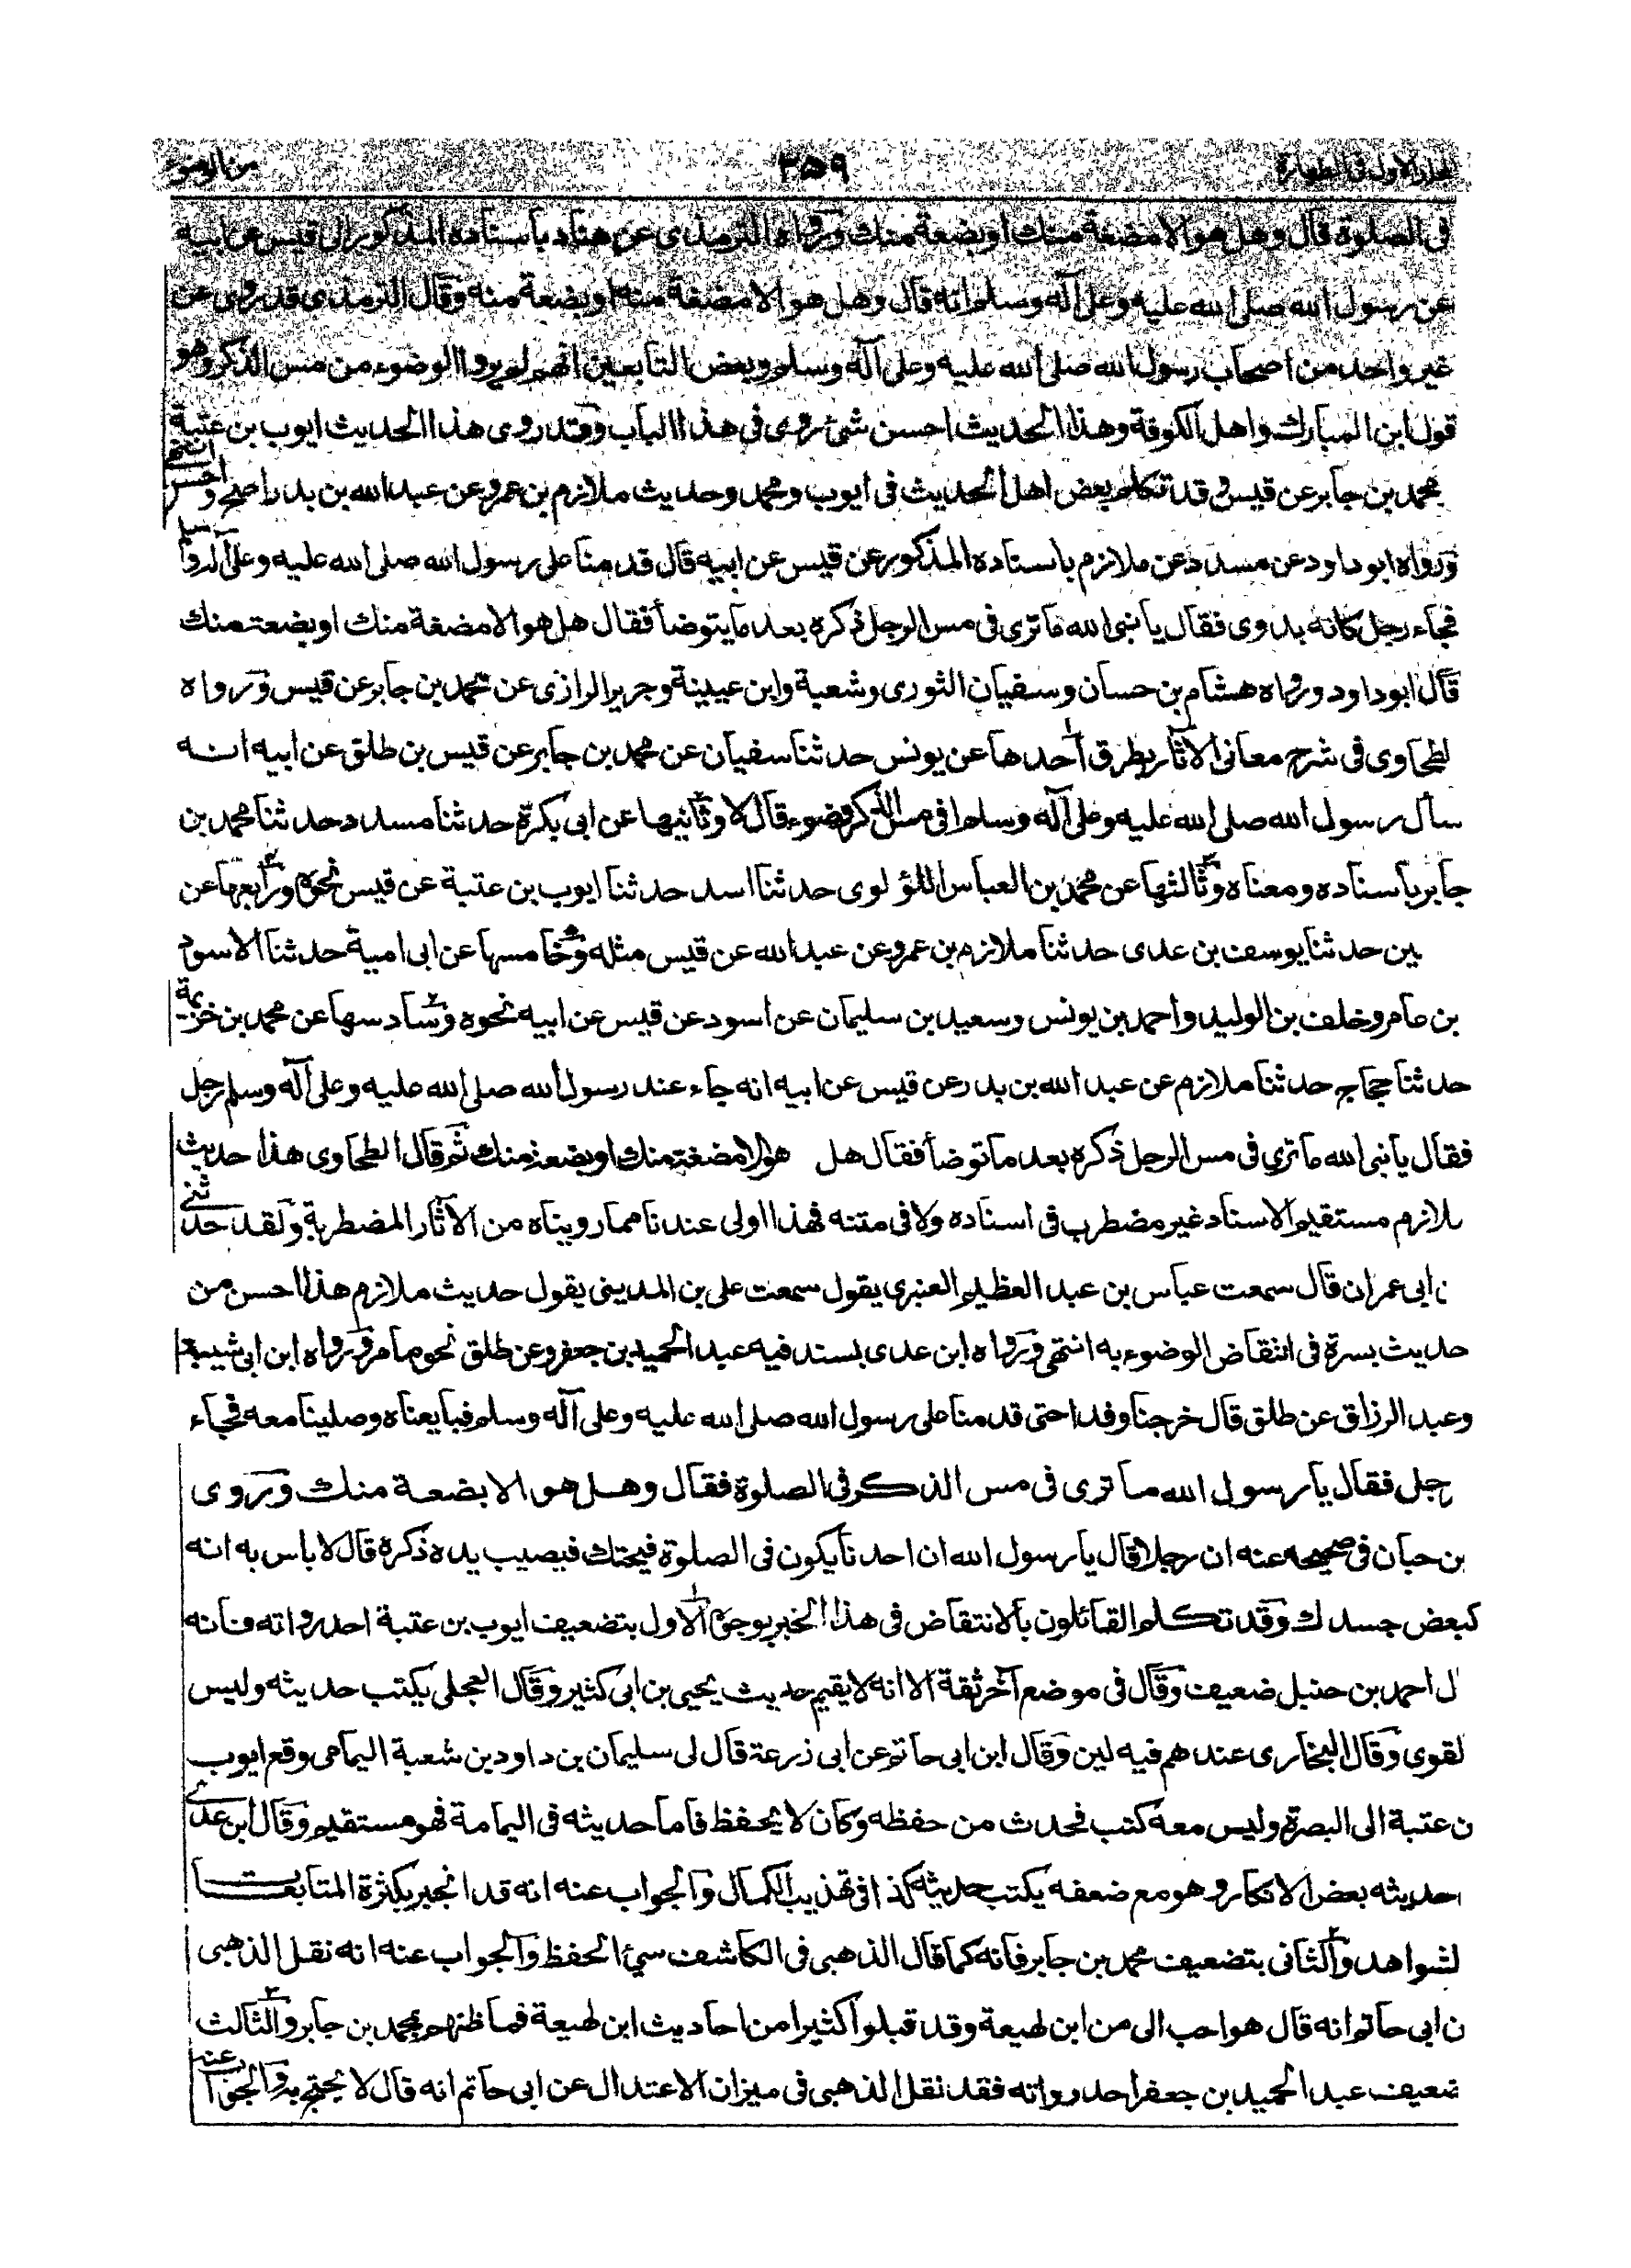 المجلد الاول فى الطهارة ٣٥٩ من الوضوء
فى الصلوة قال وهل هو الا مضغة منك او بضعة منك ورواه الترمذى عن هناد باسناده المذكور الى قيس عن ابيه
عن رسول الله صلى الله عليه وعلى آله وسلم انه قال وهل هو الا مضغة منه او بضعة منه وقال الترمذى قد روى عن
غير واحد من اصحاب رسول الله صلى الله عليه وعلى آله وسلم وبعض التابعين انهم لم يروا الوضوء من مس الذكر وهو
قول ابن المبارك واهل الكوفة وهذا الحديث احسن شئ روى فى هذا الباب وقد روى هذا الحديث ايوب بن عتبة
محمد بن جابر عن قيس وقد تكلم بعض اهل الحديث فى ايوب ومحمد وحديث ملازم بن عمرو عن عبد الله بن بدر اصح واحسن انتهى
ورواه ابو داود عن مسدد عن ملازم باسناده المذكور عن قيس عن ابيه قال قدمنا على رسول الله صلى الله عليه وعلى آله وسلم
فجاء رجل كانه بدوى فقال يا نبى الله ما ترى فى مس الرجل ذكره بعد ما يتوضأ فقال هل هو الا مضغة منك او بضعة منك
قال ابو داود ورواه هشام بن حسان وسفيان الثورى وشعبة وابن عيينة وجرير الرازى عن محمد بن جابر عن قيس ورواه
لطحاوى فى شرح معانى الآثار بطرق احدها عن يونس حدثنا سفيان عن محمد بن جابر عن قيس بن طلق عن ابيه انه
سأل رسول الله صلى الله عليه وعلى آله وسلم افى مس الذكر وضوء قال لا وثانيها عن ابى بكرة حدثنا مسدد حدثنا محمد بن
جابر باسناده ومعناه وثالثها عن محمد بن العباس اللؤلوى حدثنا اسد حدثنا ايوب بن عتبة عن قيس نحوه ورابعها عن
ين حدثنا يوسف بن عدى حدثنا ملازم بن عمرو عن عبد الله عن قيس مثله وخامسها عن ابى امية حدثنا الاسود
بن عامر وخلف بن الوليد واحمد بن يونس وسعيد بن سليمان عن اسود عن قيس عن ابيه نحوه وسادسها عن محمد بن خزيمة
حدثنا حجاج حدثنا ملازم عن عبد الله بن بدر عن قيس عن ابيه انه جاء عند رسول الله صلى الله عليه وعلى آله وسلم رجل
فقال يا نبى الله ما ترى فى مس الرجل ذكره بعد ما توضأ فقال هل هو الا مضغة منك او بضعة منك ثم قال الطحاوى هذا حديث
ملازم مستقيم الاسناد غير مضطرب فى اسناده ولا فى متنه فهذا اولى عندنا مما رويناه من الآثار المضطربة ولقد حدثنى
ن ابى عمران قال سمعت عباس بن عبد العظيم العنبرى يقول سمعت على بن المدينى يقول حديث ملازم هذا احسن من
حديث بسرة فى انتقاض الوضوء به انتهى ورواه ابن عدى بسند فيه عبد الحميد بن جعفر وعن طلق نحو ما مر ورواه ابن ابى شيبة
وعبد الرزاق عن طلق قال خرجنا وفدا حتى قدمنا على رسول الله صلى الله عليه وعلى آله وسلم فبايعناه وصلينا معه فجاء
رجل فقال يا رسول الله ما ترى فى مس الذكر فى الصلوة فقال وهل هو الا بضعة منك وروى
بن حبان فى صحيحه عنه ان رجلا قال يا رسول الله ان احدنا يكون فى الصلوة فيحتك فيصيب يده ذكره قال لا باس به انه
كبعض جسدك وقد تكلم القائلون بالانتقاض فى هذا الخبر بوجوه الاول بتضعيف ايوب بن عتبة احد رواته فانه
ل احمد بن حنبل ضعيف وقال فى موضع آخر ثقة الا انه لا يقيم حديث يحيى بن ابى كثير وقال العجلى يكتب حديثه وليس
لقوى وقال البخارى عندهم فيه لين وقال ابن ابى حاتم عن ابى زرعة قال لى سليمان بن داود بن شعبة اليمامى وقع ايوب
ن عتبة الى البصرة وليس معه كتب فحدث من حفظه وكان لا يحفظ فاما حديثه فى اليمامة فهو مستقيم وقال ابن عدى
احديثه بعض الانكار وهو مع ضعفه يكتب حديثه كذا فى تهذيب الكمال والجواب عنه انه قد انجبر بكثرة المتابعات
لشواهد والثانى بتضعيف محمد بن جابر فانه كما قال الذهبى فى الكاشف سيئ الحفظ والجواب عنه انه نقل الذهبى
ن ابى حاتم انه قال هو احب الى من ابن لهيعة وقد قبلوا كثيرا من احاديث ابن لهيعة فما ظنهم بمحمد بن جابر والثالث
ضعيف عبد الحميد بن جعفر احد رواته فقد نقل الذهبى فى ميزان الاعتدال عن ابى حاتم انه قال لا يحتج به والجواب عنه